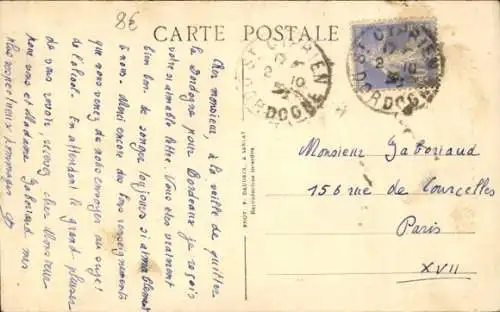 8€
CARTE POSTALE
Cher monsieur, à la veille de quitter
la Dordogne pour Bordeaux je reçois
votre aimable lettre. Vous êtes vraiment
bien bon de songer toujours si aimablement
à nous. Merci encore des bons renseignements
que vous venez de nous envoyer au sujet
de l'alcool. En attendant le grand plaisir
de vous revoir, recevez cher Monsieur
pour vous et Madame Gaboriaud mes
plus respectueux hommages
ST CYPRIEN
2 10
DORDOGNE
ST CYPRIEN
2 10
DORDOGNE
Monsieur Gaboriaud
156 rue de Courcelles
Paris
XVII